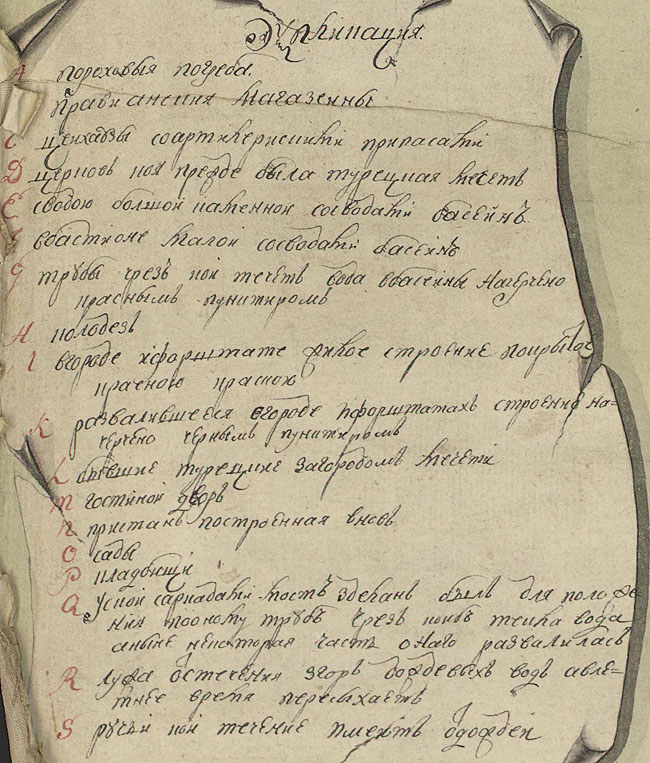 Эѯпликация.
A пороховыя погреба.
правианския магазеины
C цеихаузы соартилериискими припасами
D церковь коя прежде была турецкая мечеть
E сводою болшой каменной сосводами басеинъ
вбастионе малои сосводами басеинъ
g трубы чрезъ кои течетъ вода вбасеины начерчено
краснымъ пунктиромъ
H колодезь
I вгороде ифорштате жилое строение покрыто
крачною краскою
K развалившееся вгороде ифорштатахъ строение на=
черчено чернымъ пунктиромъ
L бывшие турецкие загородомъ мечети
m гостиной дворъ
n пристань построенная вновь
O сады
P кладбищи
Q Ускои саркадами мостъ зделанъ былъ для положе
ния поономутрубъ чрезъ коихъ текла вода
аныне некоторая часть онаго развалилась
R лужа отстечения згоръ дождевыхъ водъ авле=
тнее время пересыхаетъ
S ручьи кои течение имеютъ одождеи